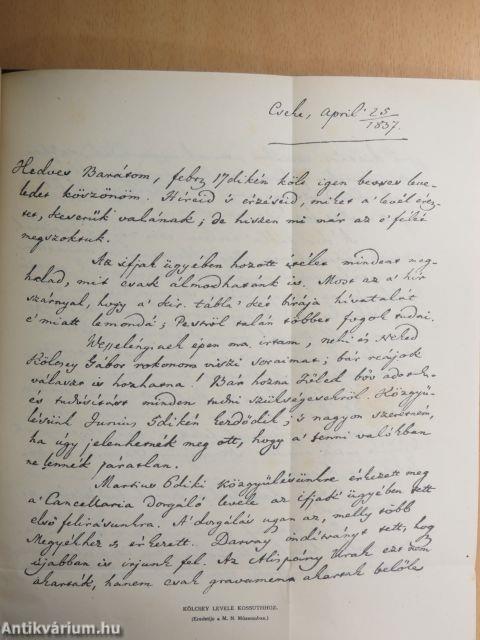 Cseke, April 25/1837.
Kedves Barátom, febr. 17dikén költ igen becses leve-
ledet köszönöm. Híreid és érzéseid, miket a' levél érez-
tet, keserűk valának; de hiszen mi már az e' félét
megszoktuk.
Az ifjak ügyében hozott ítélet mindent meg-
halad, mit csak álmodhatánk is. Most az a' hír
szárnyal, hogy a' kir. tábla' két bírája hivatalát
e' miatt lemondá; Pestről talán többet fogok tudni.
Wesselényinek épen ma írtam, neki és Neked
Kölcsey Gábor rokonom viszi soraimat; bár reájok
választ is hozhatna! Bár hozna Tőled bőv
és tudósítást minden tudni szükségesekről. Közgyű-
lésünk Junius 5dikén kezdődik, 's nagyon szeretném,
ha úgy jelenhetnék meg ott, hogy a' tenni valókban
ne lennék járatlan.
Martius 6diki közgyűlésünkre érkezett meg
a' Cancellaria dorgáló levele az ifjak' ügyében tett
első felírásunkra. A' dorgálás ugyan az, melly több
Megyékhez is érkezett. Darvay indítványt tett, hogy
újabban is írjunk fel. Az Alispány Urak ezt nem
akarták, hanem csak gravament akartak belőle
KÖLCSEY LEVELE KOSSUTHHOZ.
(Eredetije a M. N. Múzeumban.)
Antikvárium.hu